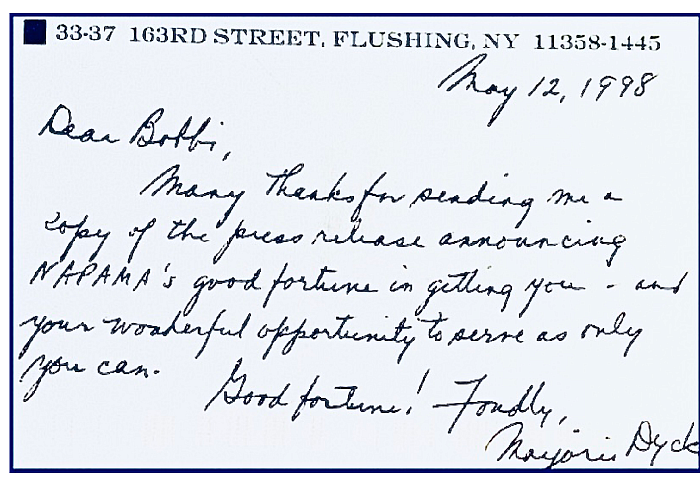 33-37 163RD STREET, FLUSHING, NY 11358-1445
May 12, 1998
Dear Bobbi,
Many thanks for sending me a
copy of the press release announcing
NAPAMA's good fortune in getting you - and
your wonderful opportunity to serve as only
you can.
Good fortune! Fondly,
Marjorie Dyck